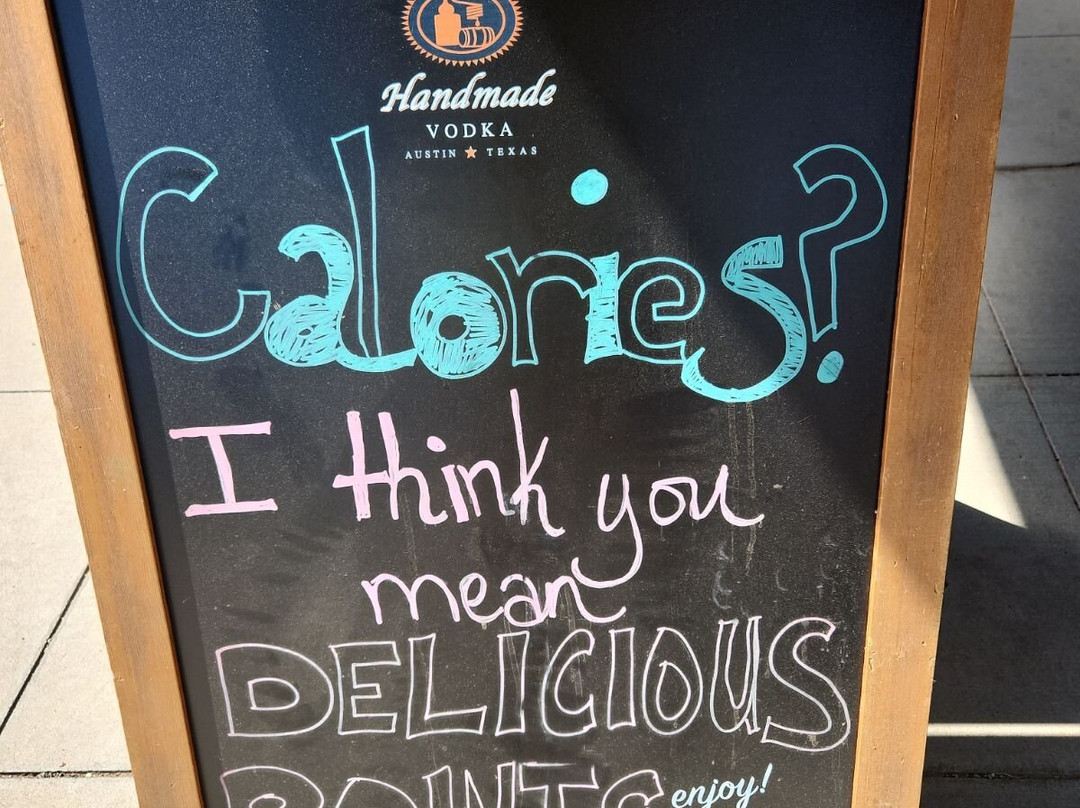 Handmade
VODKA
AUSTIN ★ TEXAS
Calories?
I think you
mean
DELICIOUS
POINTS enjoy!